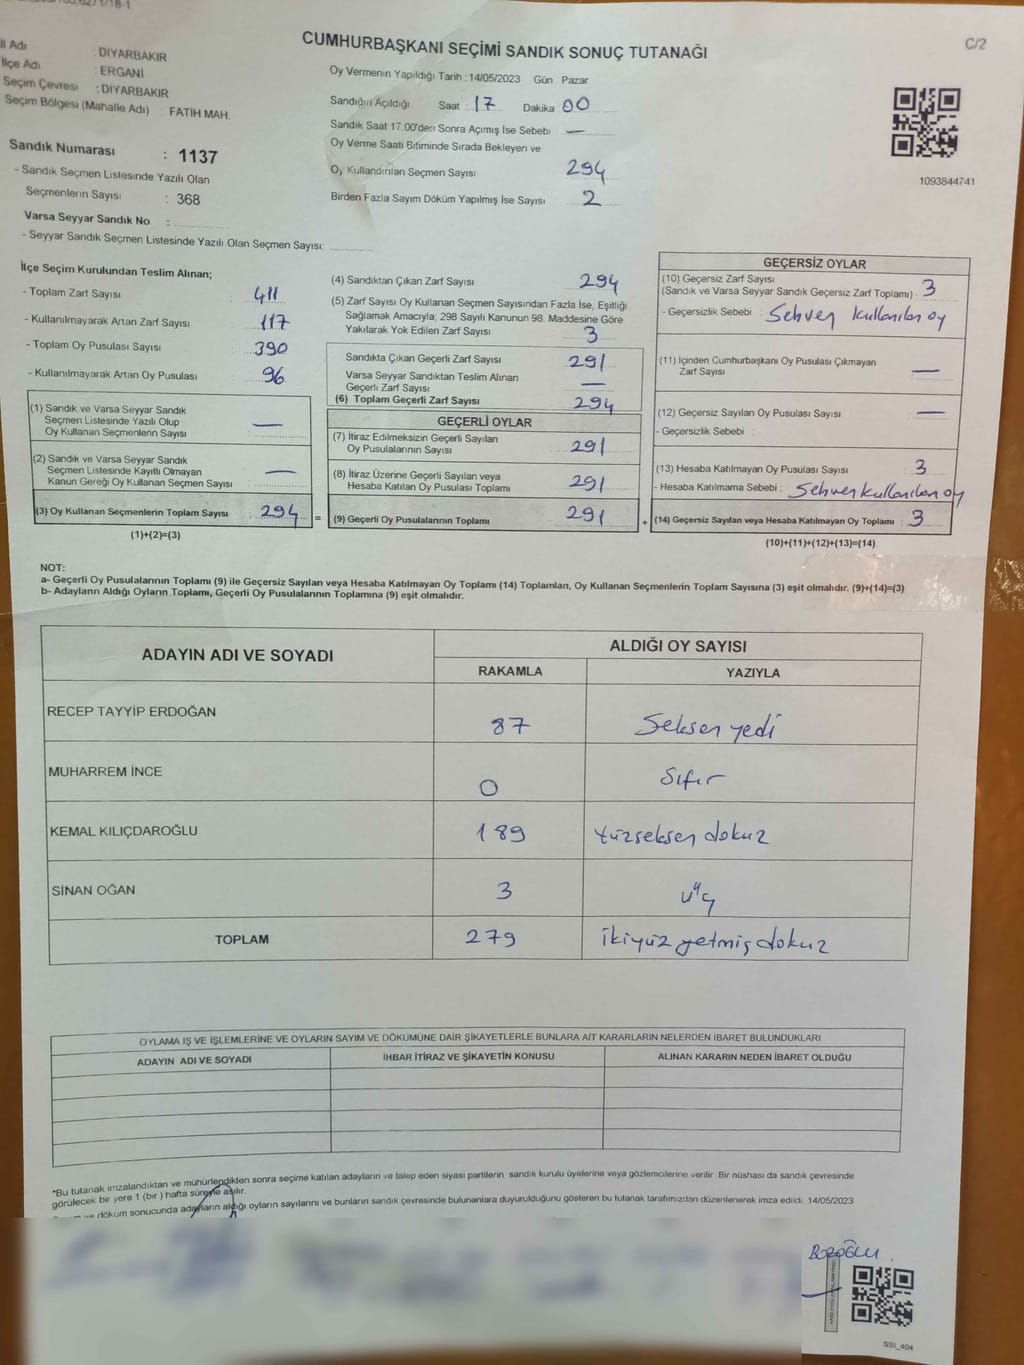 CUMHURBAŞKANI SEÇİMİ SANDIK SONUÇ TUTANAĞI
C/2
İl Adı : DİYARBAKIR
İlçe Adı : ERGANİ
Seçim Çevresi : DİYARBAKIR
Seçim Bölgesi (Mahalle Adı) FATİH MAH.
Oy Vermenin Yapıldığı Tarih : 14/05/2023 Gün Pazar
Sandığın Açıldığı Saat : 17 Dakika 00
Sandık Saat 17:00'den Sonra Açımış İse Sebebi —
Oy Verme Saati Bitiminde Sırada Bekleyen ve
Oy Kullandırılan Seçmen Sayısı 294
Birden Fazla Sayım Döküm Yapılmış İse Sayısı 2
1093844741
Sandık Numarası : 1137
- Sandık Seçmen Listesinde Yazılı Olan
Seçmenlerin Sayısı : 368
Varsa Seyyar Sandık No :
- Seyyar Sandık Seçmen Listesinde Yazılı Olan Seçmen Sayısı:
İlçe Seçim Kurulundan Teslim Alınan;
- Toplam Zarf Sayısı : 411
- Kullanılmayarak Artan Zarf Sayısı : 117
- Toplam Oy Pusulası Sayısı : 390
- Kullanılmayarak Artan Oy Pusulası : 96
(1) Sandık ve Varsa Seyyar Sandık
Seçmen Listesinde Yazılı Olup
Oy Kullanan Seçmenlerin Sayısı : —
(2) Sandık ve Varsa Seyyar Sandık
Seçmen Listesinde Kayıtlı Olmayan
Kanun Gereği Oy Kullanan Seçmen Sayısı : —
(3) Oy Kullanan Seçmenlerin Toplam Sayısı : 294 =
(1)+(2)=(3)
(4) Sandıktan Çıkan Zarf Sayısı 294
(5) Zarf Sayısı Oy Kullanan Seçmen Sayısından Fazla İse, Eşitliği
Sağlamak Amacıyla; 298 Sayılı Kanunun 98. Maddesine Göre
Yakılarak Yok Edilen Zarf Sayısı 3
Sandıkta Çıkan Geçerli Zarf Sayısı 291
Varsa Seyyar Sandıktan Teslim Alınan
Geçerli Zarf Sayısı —
(6) Toplam Geçerli Zarf Sayısı 294
GEÇERLİ OYLAR
(7) İtiraz Edilmeksizin Geçerli Sayılan
Oy Pusulalarının Sayısı 291
(8) İtiraz Üzerine Geçerli Sayılan veya
Hesaba Katılan Oy Pusulası Toplamı 291
(9) Geçerli Oy Pusulalarının Toplamı 291 +
GEÇERSİZ OYLAR
(10) Geçersiz Zarf Sayısı
(Sandık ve Varsa Seyyar Sandık Geçersiz Zarf Toplamı) : 3
- Geçersizlik Sebebi : Sehven kullanılan oy
(11) İçinden Cumhurbaşkanı Oy Pusulası Çıkmayan
Zarf Sayısı —
(12) Geçersiz Sayılan Oy Pusulası Sayısı —
- Geçersizlik Sebebi :
(13) Hesaba Katılmayan Oy Pusulası Sayısı 3
- Hesaba Katılmama Sebebi : Sehven kullanılan oy
(14) Geçersiz Sayılan veya Hesaba Katılmayan Oy Toplamı : 3
(10)+(11)+(12)+(13)=(14)
NOT:
a- Geçerli Oy Pusulalarının Toplamı (9) ile Geçersiz Sayılan veya Hesaba Katılmayan Oy Toplamı (14) Toplamları, Oy Kullanan Seçmenlerin Toplam Sayısına (3) eşit olmalıdır. (9)+(14)=(3)
b- Adayların Aldığı Oyların Toplamı, Geçerli Oy Pusulalarının Toplamına (9) eşit olmalıdır.
ADAYIN ADI VE SOYADI
ALDIĞI OY SAYISI
RAKAMLA YAZIYLA
RECEP TAYYİP ERDOĞAN 87 Seksen yedi
MUHARREM İNCE 0 Sıfır
KEMAL KILIÇDAROĞLU 189 Yüzseksen dokuz
SİNAN OĞAN 3 üç
TOPLAM 279 ikiyüz yetmiş dokuz
OYLAMA İŞ VE İŞLEMLERİNE VE OYLARIN SAYIM VE DÖKÜMÜNE DAİR ŞİKAYETLERLE BUNLARA AİT KARARLARIN NELERDEN İBARET BULUNDUKLARI
ADAYIN ADI VE SOYADI İHBAR İTİRAZ VE ŞİKAYETİN KONUSU ALINAN KARARIN NEDEN İBARET OLDUĞU
*Bu tutanak imzalandıktan ve mühürlendikten sonra seçime katılan adayların ve talep eden siyasi partilerin sandık kurulu üyelerine veya gözlemcilerine verilir. Bir nüshası da sandık çevresinde
görülecek bir yere 1 (bir ) hafta süreyle asılır.
ve döküm sonucunda adayların aldığı oyların sayılarını ve bunların sandık çevresinde bulunanlara duyurulduğunu gösteren bu tutanak tarafımızdan düzenlenerek imza edildi. 14/05/2023
BOZOĞLU
SSI_404